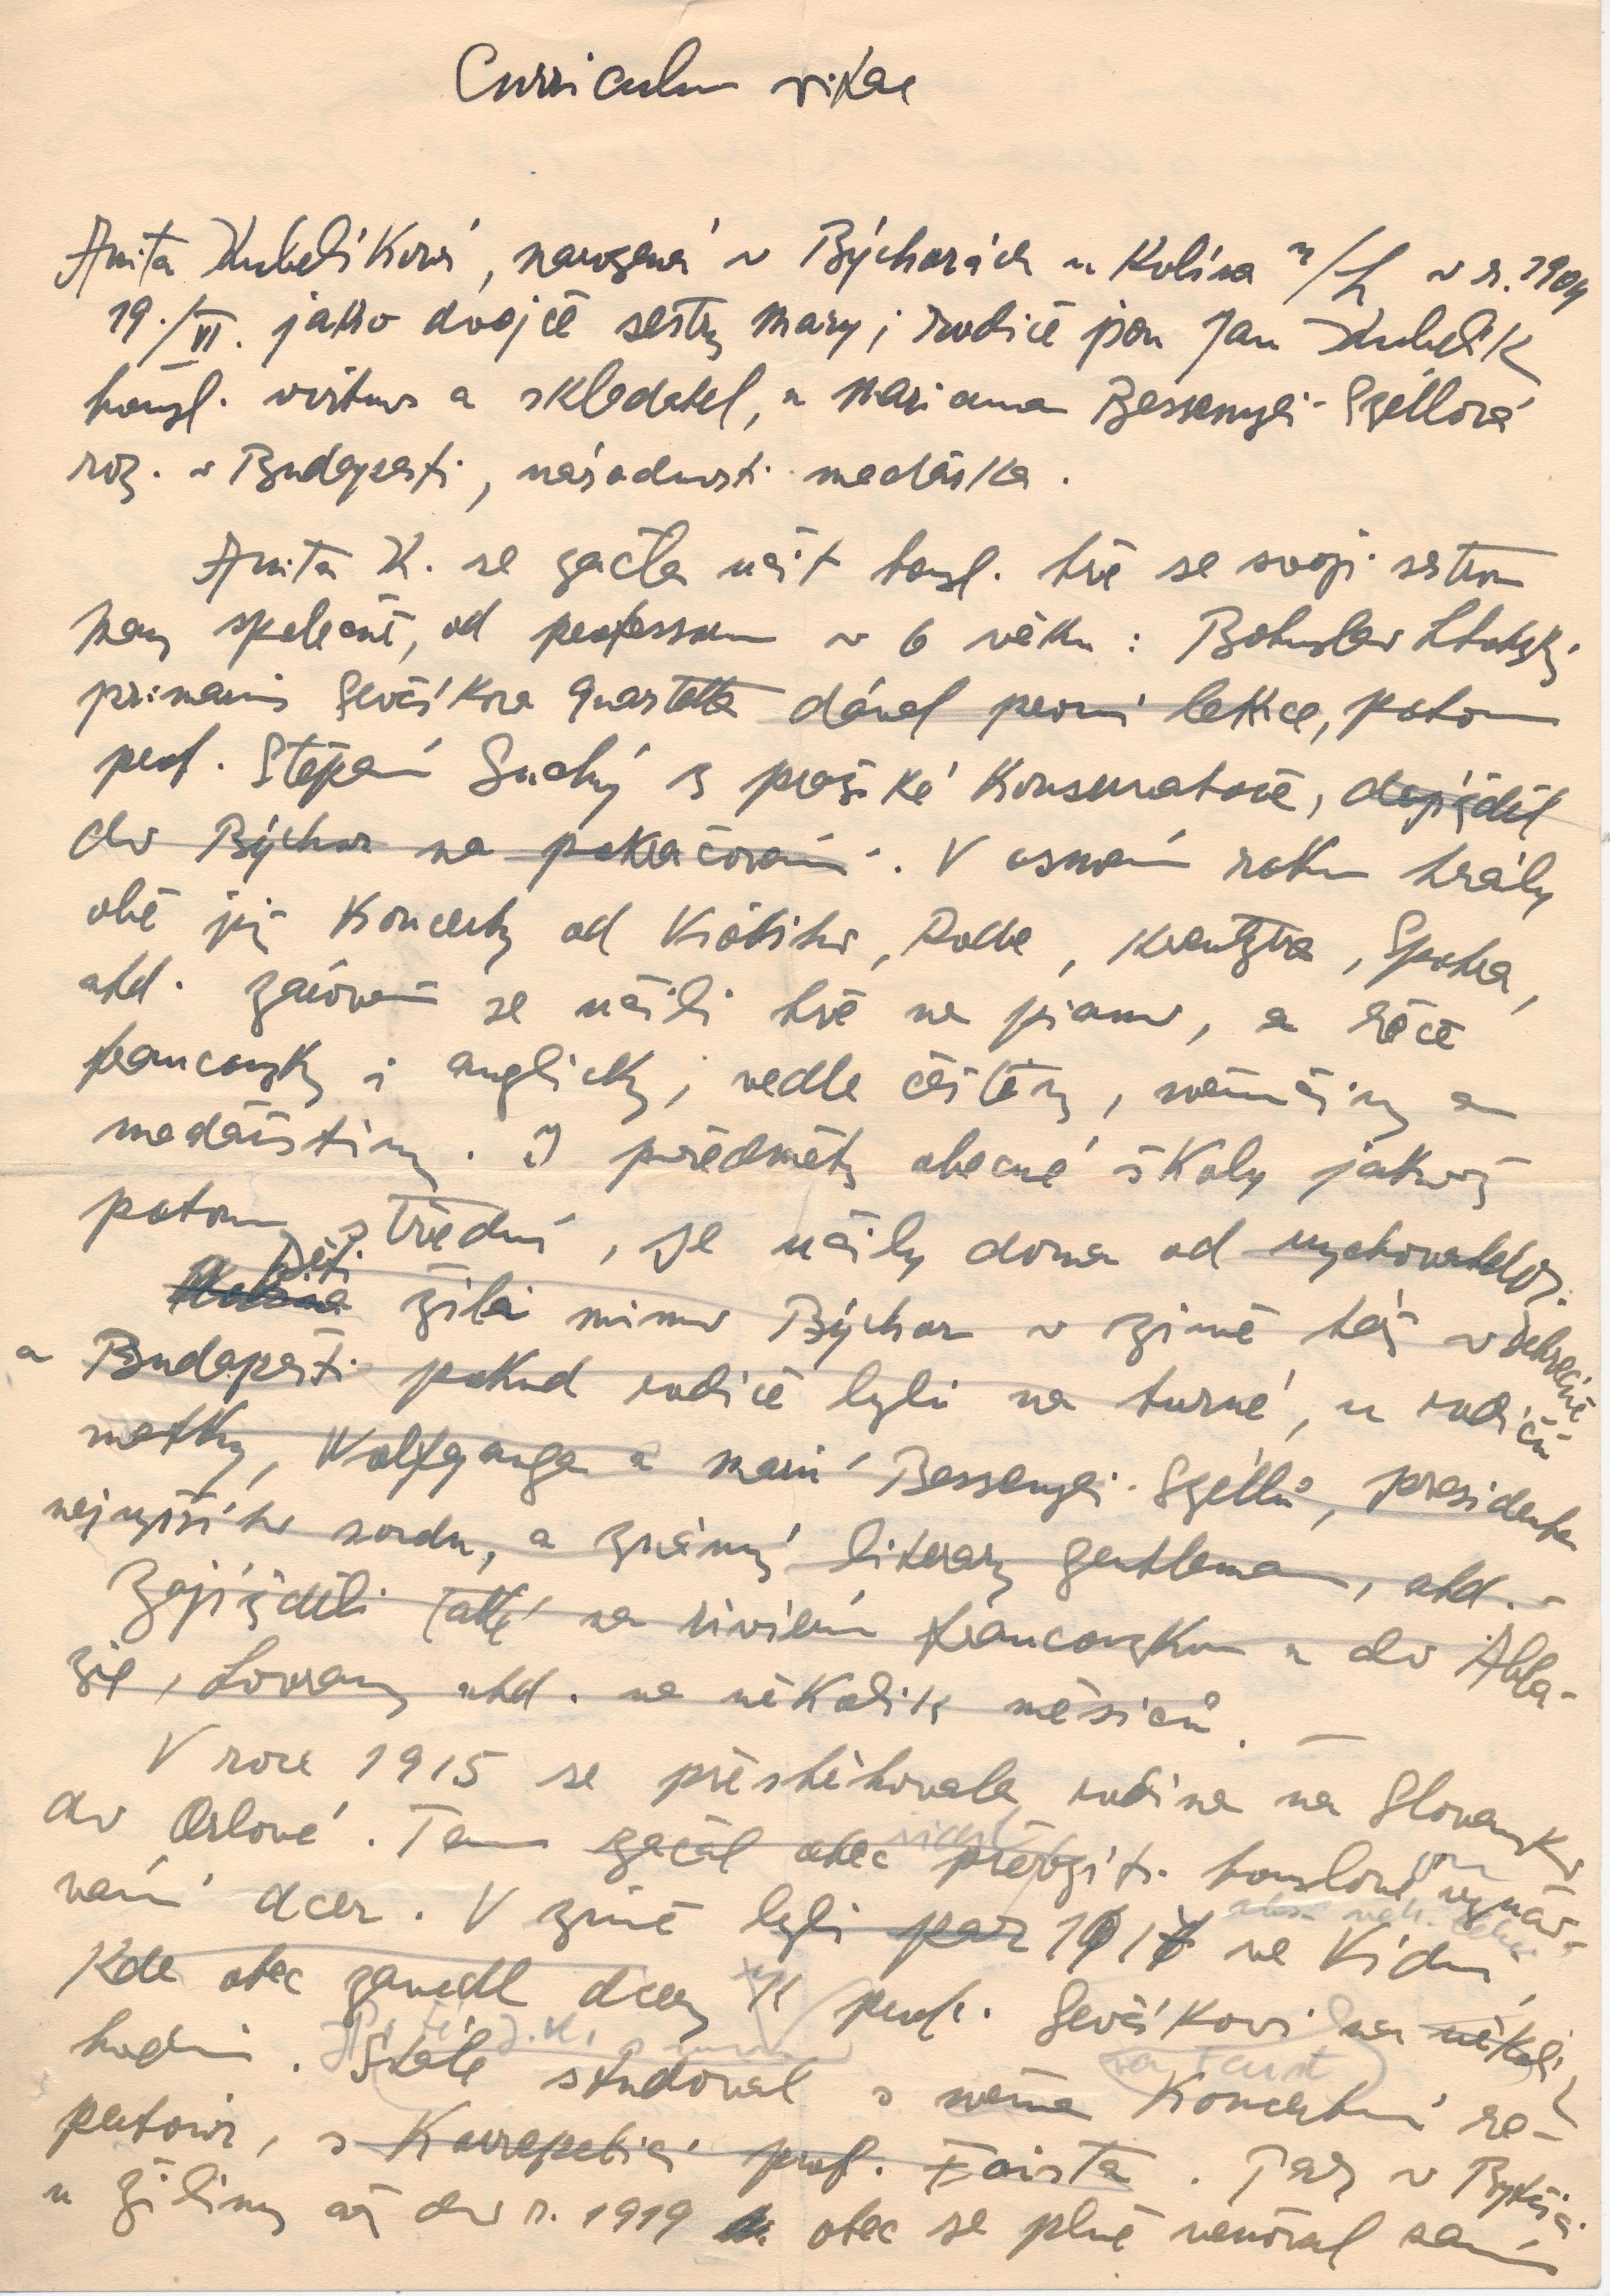 Curriculum vitae
Anita Kubelíková, narozená v Býchorách u Kolína n/L v r. 1904
19./VI. jakko dvojče sestry Mary; rodiče jsou Jan Kubelík
housl. virtuos a skladatel, a Mariana Bessenyei-Széllová
roz. v Budapešti, národnosti maďarská.
Anita K. se začla učit housl. hře se svojí sestrou
Mary společně, od professorů v 6 věku: Bohuslav Lhotský
primarius Ševčíkova Quartetta dával první lekce, potom
prof. Štěpán Suchý z pražské Konservatoře, dojížděl
do Býchor na pokračování. V osmém roku hrály
obě již Koncerty od Viottiho, Rode, Kreutzra, Spohra,
atd. zároveň se učili hře na piano, a řeče
francouzky i anglicky, vedle češtiny, němčiny a
maďarštiny. I předměty obecné školy jakož
potom střední, se učily doma od vychovatelů.
Děti žili mimo Býchor v zimě též v Debrecíně
a Budapešti pokud rodiče byli na turné, u rodičů
matky, Wolfganga a Marie Bessenyei-Széllů, presidenta
nejvyššího soudu, a známý literary gentleman, atd. -
Zajížděli také na rivieru francouzkou a do Abba-
zie, Lovrany atd. na několik měsíců. —
V roce 1915 se přestěhovala rodina na Slovensko
do Orlové. Tam začal otec houslové
vání dcer. V zimě byli 1917 ve Vídni,
Kde otec zavedl dcery k prof. Ševčíkovi na několik
hodin. Stále studoval s nima Koncertní re-
pertoir, s Korrepeticí prof. Foista. Tady v Bytči
u Žiliny až do r. 1919 otec se plně venoval sam